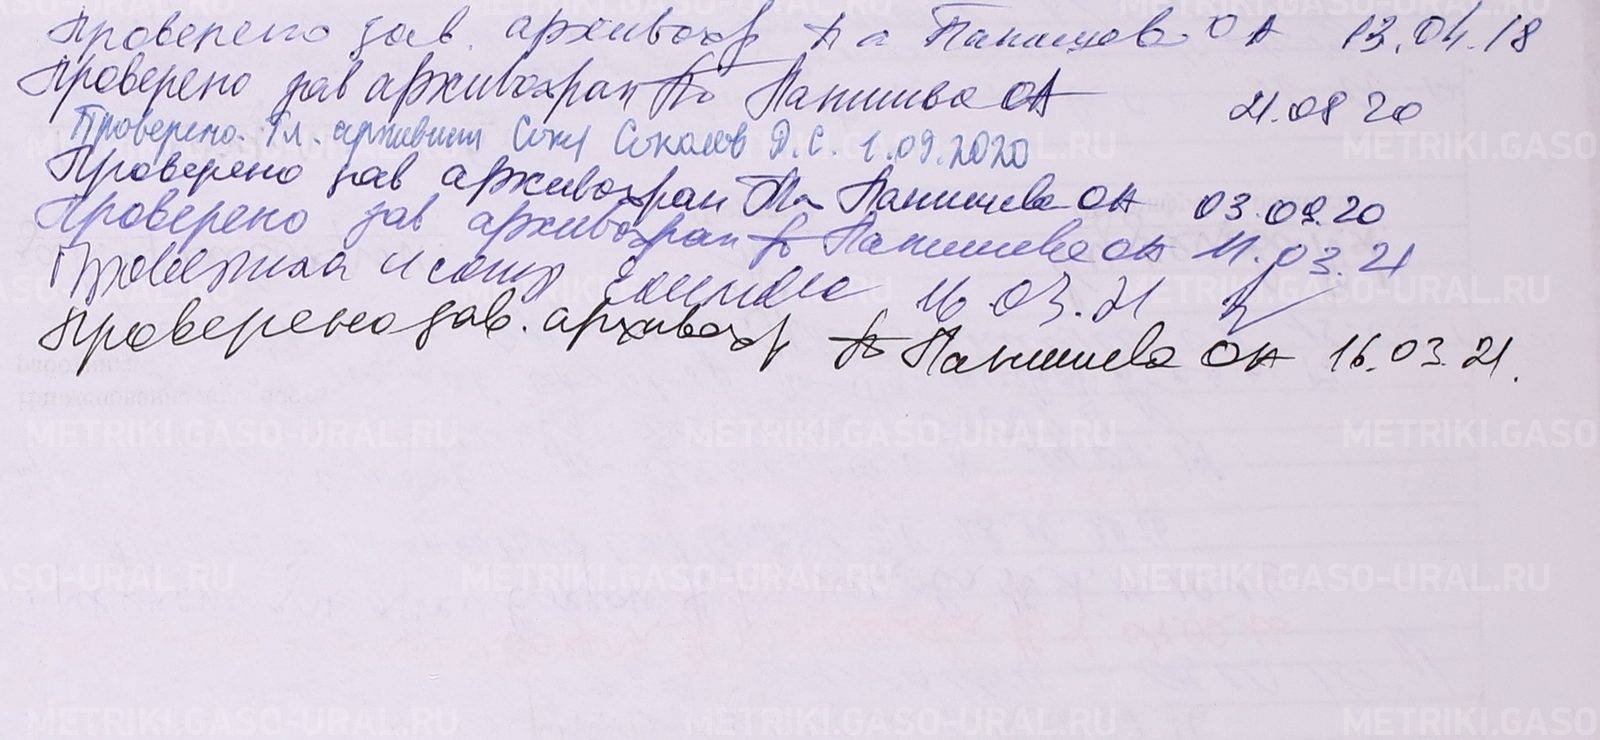 Проверено зав. архивохр Панишева ОА 13.04.18
Проверено зав архивохран Панишева ОА 21.08 20
Проверено. Гл. архивист Соколов Д.С. 1.09.2020
Проверено зав архивохран Панишева ОА 03.09.20
Проверено зав архивохран Панишева ОА 11.03.21
16 03.21
Проверено зав. архивохр Панишева ОА 16.03.21.
METRIKI.GASO-URAL.RU